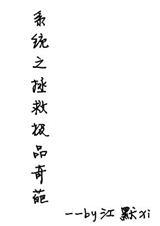 系统之拯救极品奇葩
--by江默xi